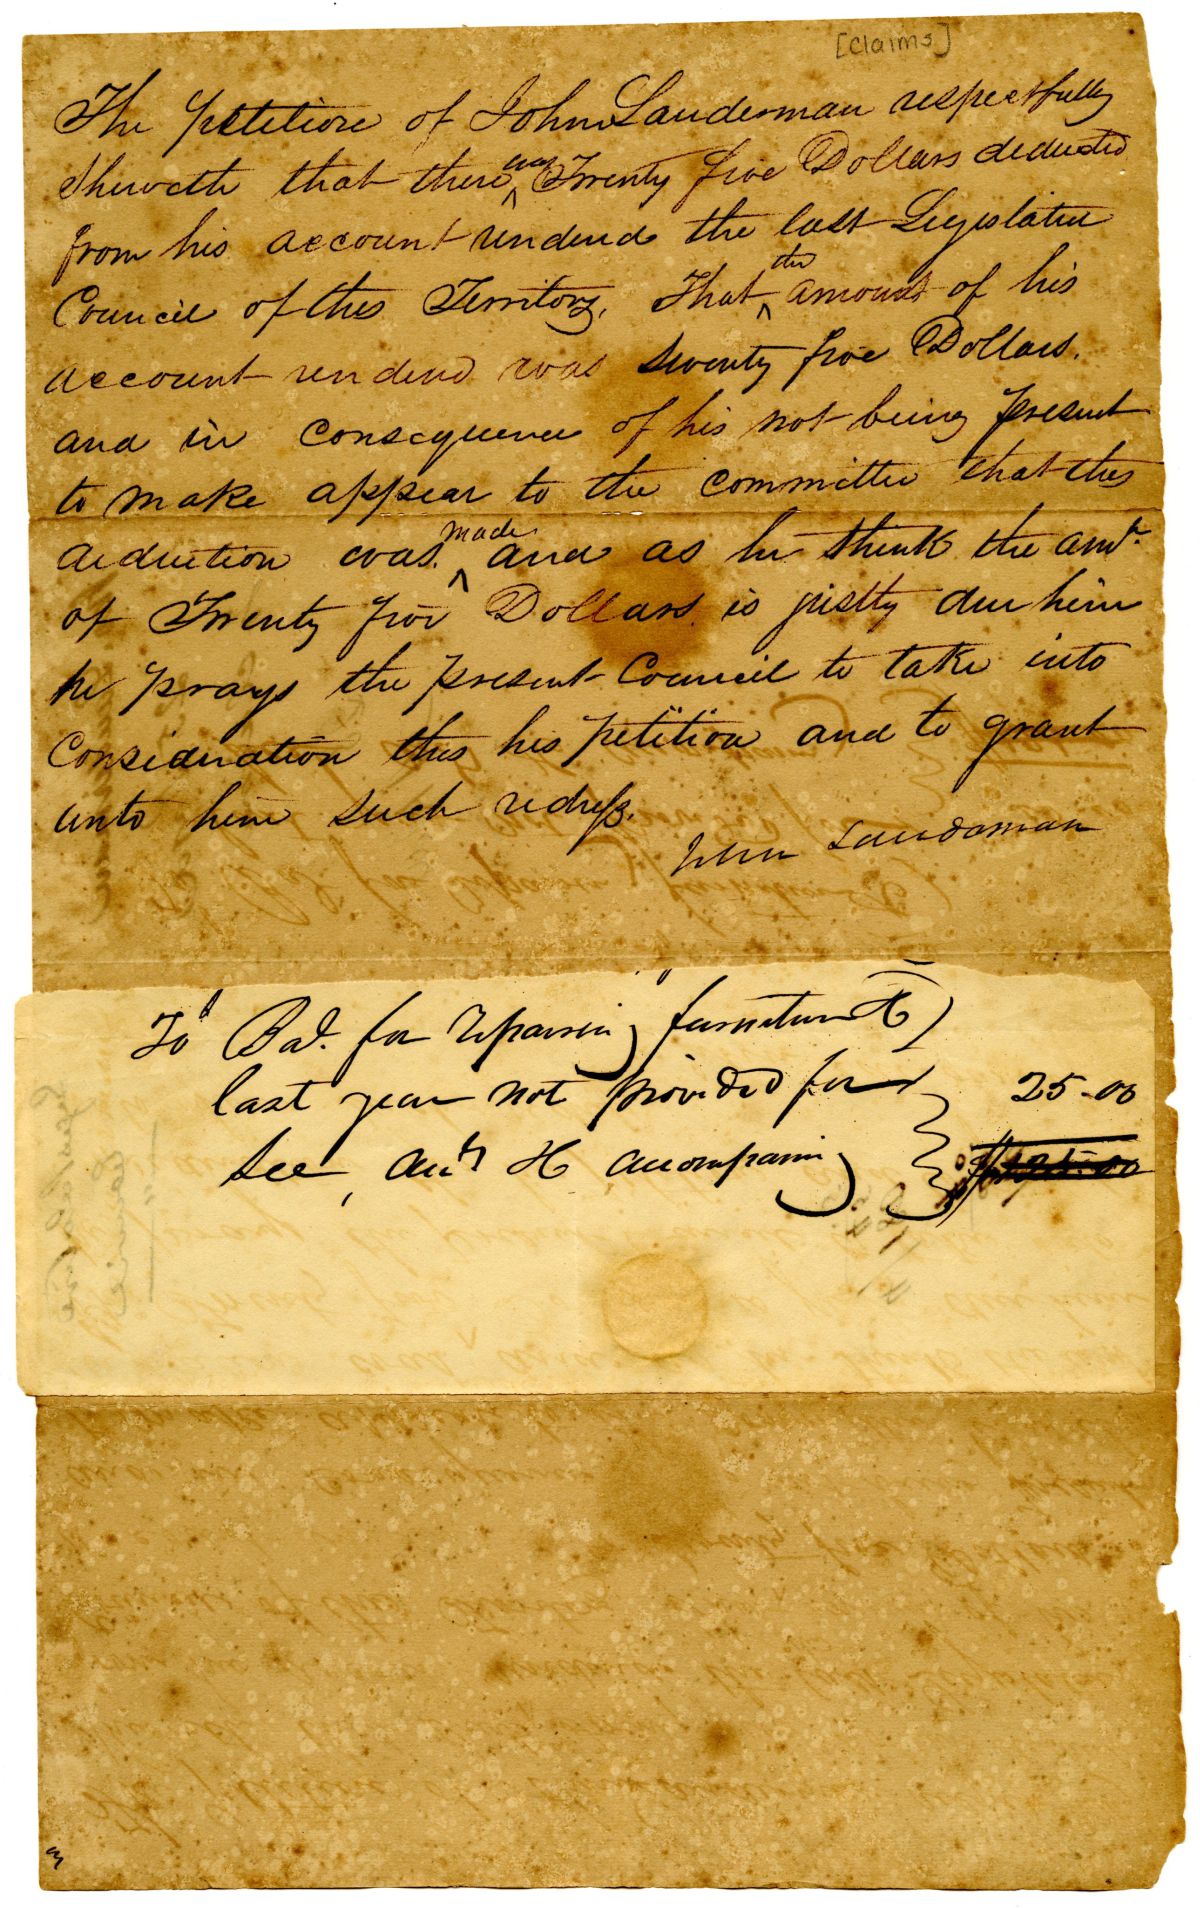 [claims]
The Petition of John Lauderman respectfully
Sheweth that there was Twenty five Dollars deducted
from his account rendered the last Legislative
Council of this Territory, That the amount of his
account rendered was seventy five Dollars.
and in consequence of his not being present
to make appear to the committee that this
deduction was made and as he think the amt.
of Twenty five Dollars is justly due him
he prays the present Council to take into
Consideration this his petition and to grant
unto him such redress.
John Lauderman
To Bal. for repairing furniture &c
last year not provided for
See, acct accompanying
25.00
3